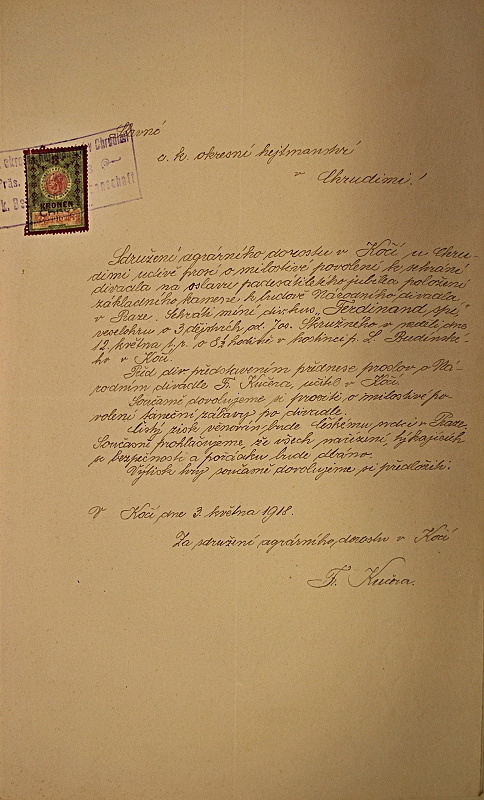 Slavné
c. k. okresní hejtmanství
v Chrudimi!
KRONEN
Sdružení agrárního dorostu v Kočí u Chru-
dimi uctivě prosí o milostivé povolení ku sehrání
divadla na oslavu padesátiletého jubilea položení
základního kamene k budově Národního divadla
v Praze. Sehráti míní divkus „Ferdinand spí,"
veselohru o 3 dějstvích od Jos. Skružného v neděli dne
12. května t. r. o 8½ hodině v hostinci p. L. Budínské-
ho v Kočí.
Před div. představením přednese proslov o Ná-
rodním divadle F. Kučera, učitel v Kočí.
Současně dovolujeme si prositi o milostivé po-
volení taneční zábavy po divadle.
Čistý zisk věnován bude Českému srdci v Praze.
Současně prohlašujeme, že všech nařízení, týkajících
se bezpečnosti a pořádku bude dbáno.
Výtisk hry současně dovolujeme si předložiti.
V Kočí, dne 3. května 1918.
Za sdružení agrárního dorostu v Kočí
F. Kučera.